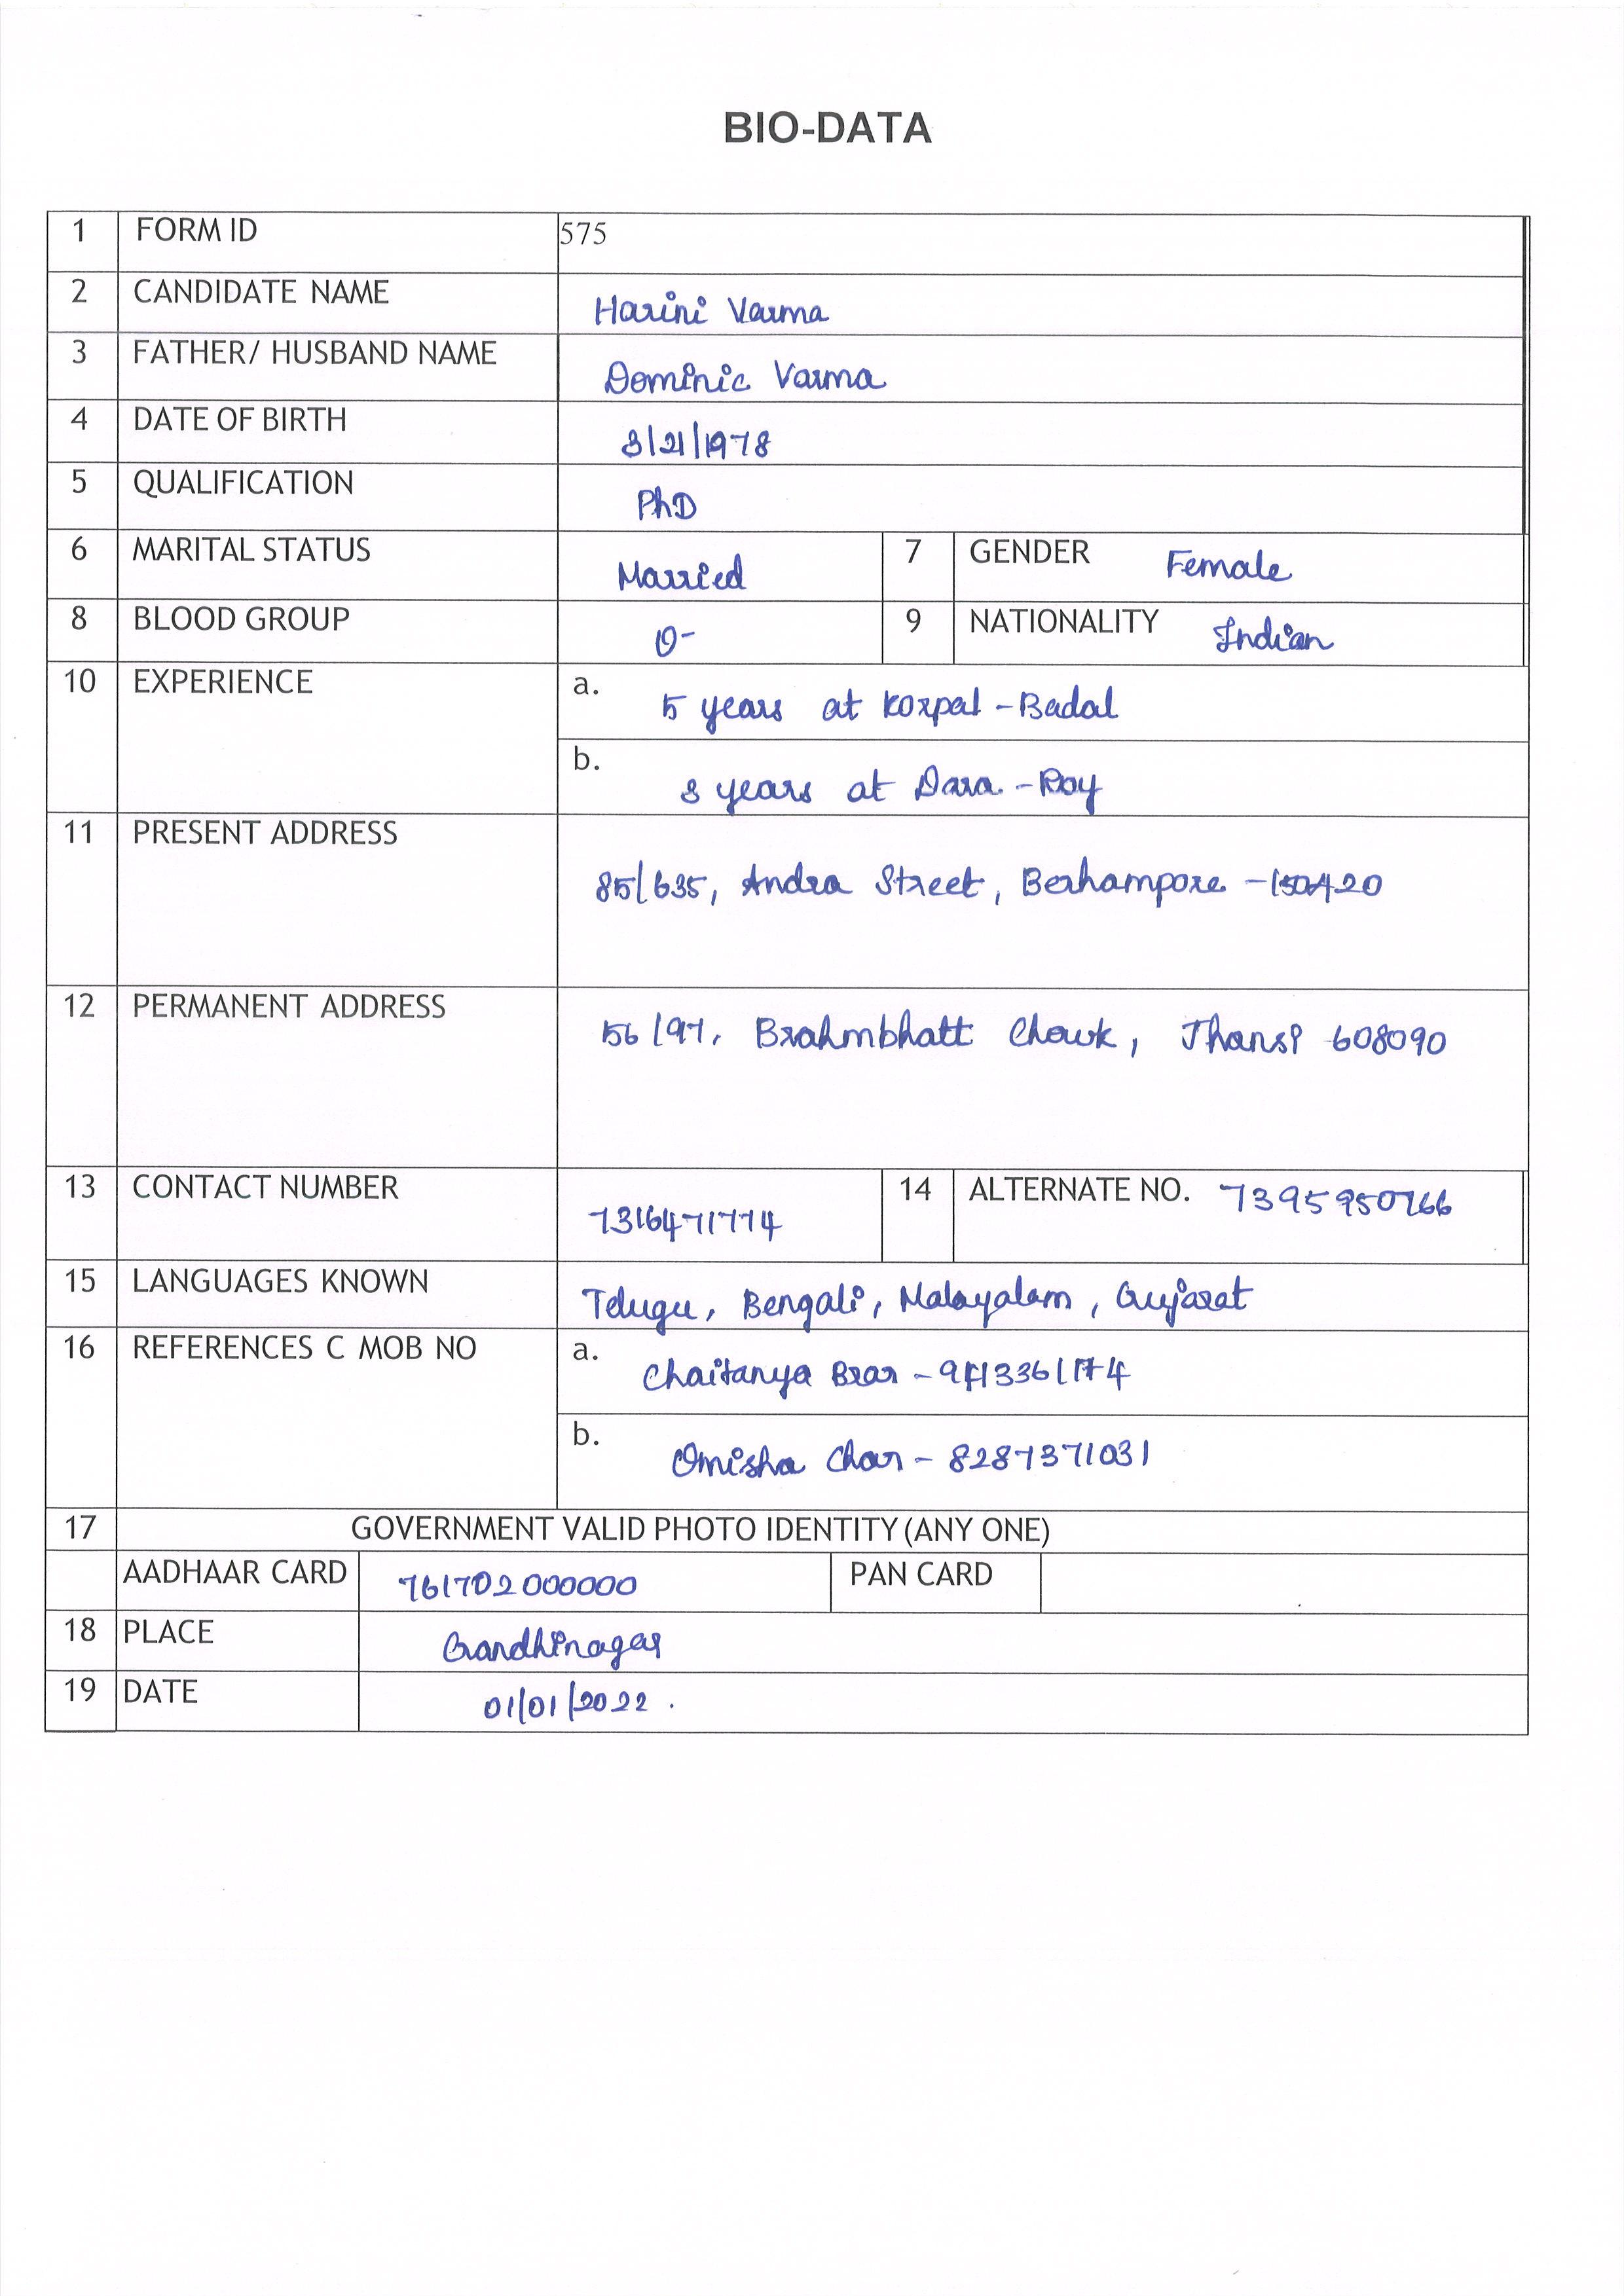 BIO-DATA
1 FORM ID 575
2 CANDIDATE NAME Harini Varma
3 FATHER/ HUSBAND NAME Dominic Varma
4 DATE OF BIRTH 3/21/1978
5 QUALIFICATION PhD
6 MARITAL STATUS Married 7 GENDER Female
8 BLOOD GROUP O- 9 NATIONALITY Indian
10 EXPERIENCE a. 5 years at Korpal - Badal
b. 8 years at Dara - Roy
11 PRESENT ADDRESS 85/635, Andra Street, Berhampore - 150420
12 PERMANENT ADDRESS 56/97, Brahmbhatt Chowk, Jhansi 608090
13 CONTACT NUMBER 7316471774 14 ALTERNATE NO. 7395950766
15 LANGUAGES KNOWN Telugu, Bengali, Malayalam, Gujarat
16 REFERENCES C MOB NO a. Chaitanya Brar -
b. Omisha Char - 8287371031
17 GOVERNMENT VALID PHOTO IDENTITY (ANY ONE)
AADHAAR CARD 761702000000 PAN CARD
18 PLACE Gandhinagar
19 DATE 01/01/2022.